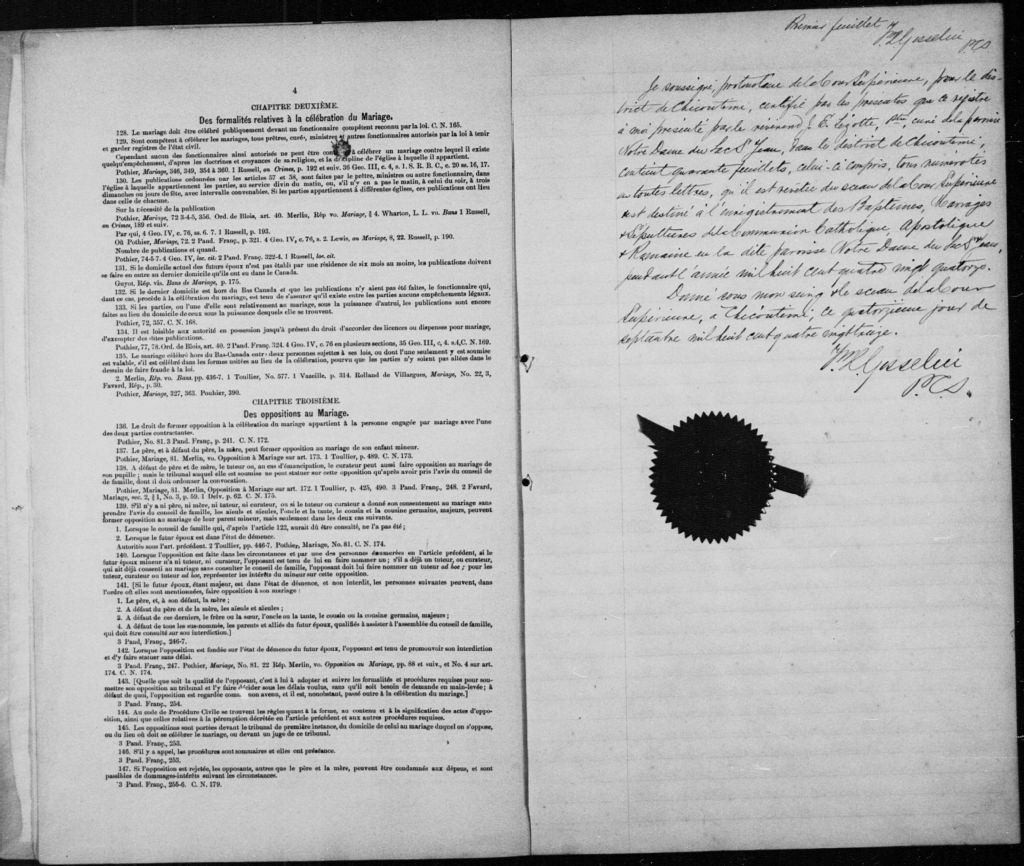 4
CHAPITRE DEUXIÈME.
Des formalités relatives à la célébration du Mariage.
128. Le mariage doit être célébré publiquement devant un fonctionnaire compétent reconnu par la loi. C. N. 165.
129. Sont compétents à célébrer les mariages, tous prêtres, curés, ministres et autres fonctionnaires autorisés par la loi à tenir
et garder registres de l'état civil.
Cependant aucun des fonctionnaires ainsi autorisés ne peut être à célébrer un mariage contre lequel il existe
quelqu'empêchement, d'apres les doctrines et croyances de sa religion, et la discipline de l'église à laquelle il appartient.
Pothier, Mariage, 346, 349, 354 à 360. 1 Russell, on Crimes, p. 192 et suiv. 36 Geo. III, c.4, s. 1. S. R. B. C., c. 20 ss. 16, 17.
130. Les publications ordonnées par les articles 57 et 58, sont faites par le prêtre, ministres ou autre fonctionnaire, dans
l'église à laquelle appartiennent les parties, au service divin du matin, ou, s'il n'y en a pas le matin, à celui du soir, à trois
dimanches ou jours de fête, avec intervalle convenables. Si les parties appartiennent à différentes églises, ces publications ont lieu
dans celle de chacune.
Sur la nécessité de la publication
Pothier, Mariage, 72 3-4-5, 356. Ord. de Blois, art. 40. Merlin, Rép vo. Mariage, § 4. Wharton, L. L. vo. Bans 1 Russell,
on Crimes, 189 et suiv.
Par qui, 4 Geo. IV, c. 76, ss. 6. 7. 1 Russell, p. 193.
Où Pothier, Mariage, 72. 2 Pand. Franç., p. 321. 4 Geo. IV, c.76, s. 2. Lewis, on Mariage, 8, 22. Russell, p. 190.
Nombre de publications et quand.
Pothier, 74-5-7. 4 Geo. IV, loc. cit. 2 Pand. Franç. 322-4. 1 Russell, loc. cit.
131. Si le domicile actuel des futurs époux n'est pas établi par une résidence de six mois au moins, les publications doivent
se faire en outre au dernier domicile qu'ils ont eu dans le Canada.
Guyot, Rép. vis. Bans de Mariage, p. 175.
132. Si le dernier domicile est hors du Bas Canada et que les publications n'y aient pas été faites, le fonctionnaire qui,
dant ce cas, procède à la célébration du mariage, est tenu de s'assurer qu'il existe entre les parties aucuns empêchements légaux.
133. Si les parties, ou l'une d'elle sont relativement au mariage, sous la puissance d'autrui, les publications sont encore
faites au lieu du domicile de ceux sous la puissance desquels elle se trouvent.
Pothier, 72, 357. C. N. 168.
134. Il est loisible aux autorité en possession jusqu'à présent du droit d'accorder des licences ou dispenses pour mariage,
d'exempter des dites publications.
Pothier, 77, 78. Ord. de Blois, art. 40. 2 Pand Franç. 324. 4 Geo. IV, c. 76 en plusieurs sections, 35 Geo. III, c, 4. s.4,C. N. 169.
135. Le mariage célébré hors du Bas-Canada entre deux personnes sujettes à ses lois, ou dont l'une seulement y est soumise
est valable, s'il est célébré dans les formes usitées au lieu de la célébration, pourvu que les parties n'y soient pas allées dans le
dessin de faire fraude à la loi.
2. Merlin, Rép. vo. Bans, pp. 436-7. 1 Toullier, No. 577. 1 Vazeille, p. 314. Rolland de Villargues, Mariage, No. 22, 3,
Favard, Rép., p. 50.
Pothier, Mariage, 327, 363. Pouhier, 390.
CHAPITRE TROISIÈME.
Des oppositions au Mariage.
136. Le droit de former opposition à la célébration du mariage appartient à la personne engagée par mariage avec l'une
des deux parties contractantes.
Pothier, No. 81. 3 Pand. Franç, p. 241. C. N. 172.
137. Le père, et à défaut du père, la mère, peut former opposition au mariage de son enfant mineur.
Pothier, Mariage, 81. Merlin, vo. Opposition à Mariage sur art. 173. 1 Toullier, p. 489. C. N. 173.
138. A défaut de père et de mère, le tuteur ou, au cas d'émancipation, le curateur peut aussi faire opposition au mariage de
son pupille ; mais le tribunal auquel elle est soumise ne peut statuer sur cette opposition qu'après avoir pris l'avis du conseil de
de famille, dont il doit ordonner la convocation.
Pothier, Mariage, 81. Merlin, Opposition à Mariage sur art. 172. 1 Toullier, p. 425, 490. 3 Pand. Franç., 248. 2 Favard,
Mariage, sec. 2, § 1, No. 3, p. 59. 1 Delv. p. 62. C. N. 175.
139. S'il n'y a ni père, ni mère, ni tuteur, ni curateur, ou si le tuteur ou curateur a donné son consentement au mariage sans
prendre l'avis du conseil de famille, les aïeuls et aïeules, l'oncle et la tante, le cousin et la cousine germains, majeurs, peuvent
former opposition au mariage de leur parent mineur, mais seulement dans les deux cas suivants.
1. Lorsque le conseil de famille qui, d'après l'article 122, aurait dû être consulté, ne l'a pas été ;
2. Lorsque le futur époux est dans l'état de démence.
Autorités sous l'art. précédent. 2 Toullier, pp. 446-7. Pothier, Mariage, No. 81. C. N. 174.
140. Lorsque l'opposition est faite dans les circonstances et par une des personnes énumérées en l'article précédent, si le
futur époux mineur n'a ni tuteur, ni curateur, l'opposant est tenu de lui en faire nommer un ; s'il a déjà un tuteur, ou curateur,
qui ait déjà consenti au mariage sans consulter le conseil de famille, l'opposant doit lui faire nommer un tuteur ad hoc ; pour les
tuteur, curateur ou tuteur ad hoc, représenter les intérêts du mineur sur cette opposition.
141. [Si le futur époux, étant majeur, est dans l'état de démence, et non interdit, les personnes suivantes peuvent, dans
l'ordre où elles sont mentionnées, faire opposition à son mariage :
1. Le père, et, à son défaut, la mère ;
2. A défaut du père et de la mère, les aïeuls et aïeules ;
3. A défaut de ces derniers, le frère ou la sœur, l'oncle ou la tante, le cousin ou la cousine germains, majeurs ;
4. A défaut de tous les sus-nommés, les parents et alliés du futur époux, qualifiés à assister à l'assemblée du conseil de famille,
qui doit être consulté sur son interdiction.]
3 Pand, Franç., 246-7.
142. Lorsque l'opposition est fondée sur l'état de démence du futur époux, l'opposant est tenu de promouvoir son interdiction
et d'y faire statuer sans délai.
3 Pand. Franç., 247. Pothier, Mariage, No. 81. 22 Rép. Merlin, vo. Opposition au Mariage, pp. 88 et suiv., et No. 4 sur art.
174. C. N. 174.
143. [Quelle que soit la qualité de l'opposant, c'est à lui à adopter et suivre les formalités et procédures requises pour sou-
mettre son opposition au tribunal et l'y faire décider sous les délais voulus, sans qu'il soit besoin de demande en main-levée ; à
défaut de quoi, l'opposition est regardée comme non avenu, et il est, nonobstant, passé outre à la célébration du mariage.]
3 Pand. Franç., 254.
144. Au code de Procédure Civile se trouvent les règles quant à la forme, au contenu et à la signification des actes d'oppo-
sition, ainsi que celles relatives à la péremption décrétée en l'article précédent et aux autres procédures requises.
145. Les oppositions sont portées devant le tribunal de première instance, du domicile de celui au mariage duquel on s'oppose,
ou du lieu où doit se célébrer le mariage, ou devant un juge de ce tribunal.
3 Pand. Franç., 253.
146. S'il y a appel, les procédures sont sommaires et elles ont préséance.
3 Pand. Franç., 253.
147. Si l'opposition est rejetée, les opposants, autres que le père et la mère, peuvent être condamnés aux dépens, et sont
passibles de dommages-intérêts suivant les circonstances.
3 Pand. Franç., 255-6. C. N. 179.
Premier feuillet
Gosselin
P.C.S.
Je soussigné, protonotaire de la Cour Supérieure, pour le dis-
trict de Chicoutimi, certifie par les présentes que ce registre
à moi présenté par le révérend J. E. Lizotte, Ptre, curé de la paroisse
Notre Dame du Lac St Jean, dans le district de Chicoutimi,
contient quarante feuillets, celui-ci compris, tous numérotés
en toutes lettres, qu'il est revêtu du sceau de la Cour Supérieure
& est destiné à l'enregistrement des Baptêmes, Mariages
& Sépultures de la Communion Catholique, Apostolique
& Romaine en la dite paroisse Notre Dame du Lac St Jean,
pendant l'année mil huit cent quatre vingt quatorze.
Donné sous mon seing & le sceau de la Cour
Supérieure, à Chicoutimi, ce quatorzième jour de
septembre mil huit cent quatre vingt treize.
Gosselin
P.C.S.